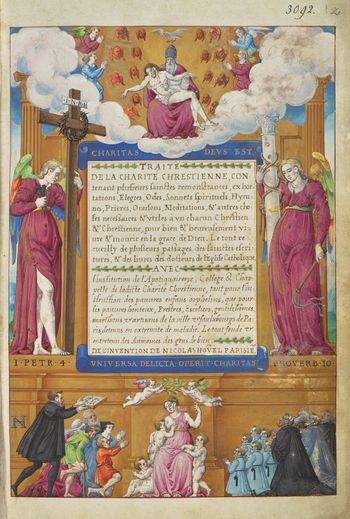 3092.
2
INRI
CHARITAS DEVS EST
TRAITÉ
DE LA CHARITÉ CHRESTIENNE, CON-
tenant plusieurs sainctes remonstrances, exhor
tations, Elegies, Odes, Sonnets spirituels, Hym-
nes, Prieres, Oraisons, Meditations, & autres cho-
ses necessaires & utiles a un chacun Chrestien
& Chrestienne, pour bien & heureusement viu-
re & mourir en la grace de Dieu. Le tout re-
cueilly de plusieurs passages des sainctes escri-
tures, & des liures des docteurs de l'Eglise Catholique.
AVEC
l'institution de l'Apotiquairerye, College & Chap-
pelle de ladicte Charité Chrestienne, tant pour l'in-
struction des pauures enfans orphelins, que pour
les pauures honteux, Prestres, Escoliers, gentilzhommes,
marchans, & artisans de la ville & fauxbourgs de Pa-
ris, detenus en extremité de maladie. Le tout fondé &
entretenu des Aulmosnes des gens de bien.
DE L'INVENTION DE NICOLAS HOVEL PARISIĒ.
I · PETR · 4 · VNIVERSA DELICTA OPERIT CHARITAS PROVERB · 10 ·